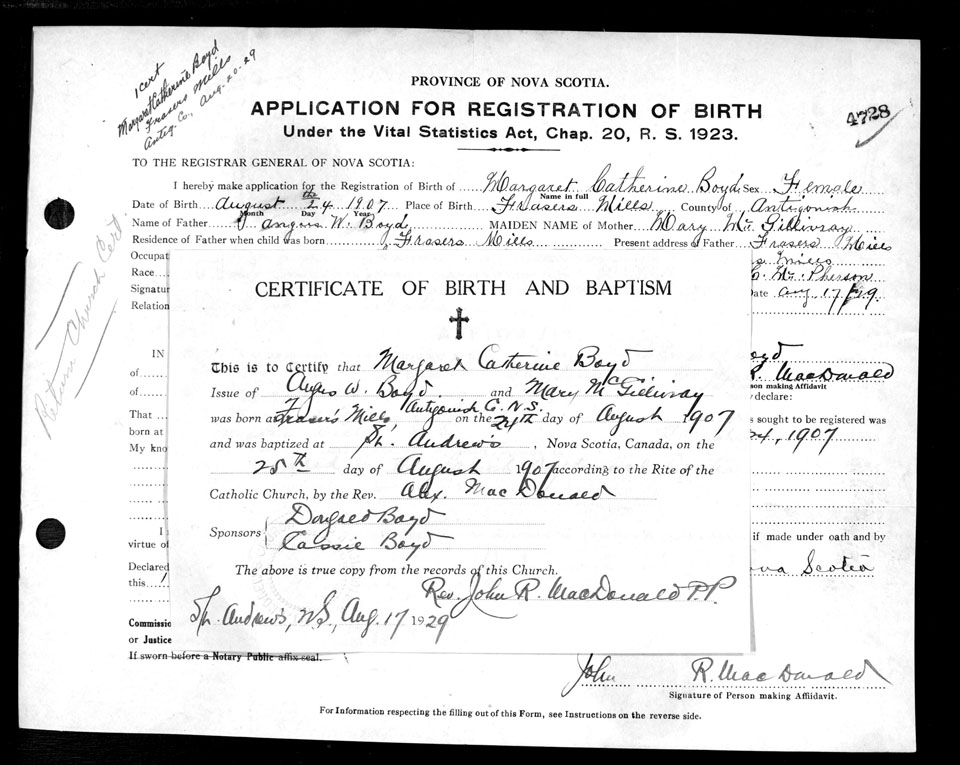 1 cert
Margaret Catherine Boyd
Frasers Mills
Antig. Co., Aug-20-29
PROVINCE OF NOVA SCOTIA.
APPLICATION FOR REGISTRATION OF BIRTH
Under the Vital Statistics Act, Chap. 20, R. S. 1923.
4728
TO THE REGISTRAR GENERAL OF NOVA SCOTIA:
I hereby make application for the Registration of Birth of Margaret Catherine Boyd Sex Female
Name in full
Date of Birth August the 24 1907 Place of Birth Frasers Mills County of Antigonish
Month Day Year
Name of Father W. Boyd MAIDEN NAME of Mother Mary Mc Gillivray
Residence of Father when child was born Frasers Mills Present address of Father Frasers Mills
Occupat
Mills
Race
C. Mc Pherson
Signatur
Date Aug 17/29.
Relation
Return Church Cert
CERTIFICATE OF BIRTH AND BAPTISM
This is to Certify that Margaret Catherine Boyd
Issue of Angus W. Boyd and Mary McGillivray
was born at Fraser's Mills, Antigonish Co. N.S. on the 24th day of August 1907
and was baptized at St. Andrew's, Nova Scotia, Canada, on the
25th day of August 1907 according to the Rite of the
Catholic Church, by the Rev. Alex. MacDonald
Sponsors
Dougald Boyd
Cassie Boyd
The above is true copy from the records of this Church.
Rev. John R. MacDonald P.P.
St. Andrew's, N.S., Aug. 17 1929
IN
oyd
of
R. MacDonald
son making Affidavit
of
declare:
That
s sought to be registered was
born at
24, 1907
My kno
I
if made under oath and by
virtue of
Declared
ova Scotia
this
Commissio
or Justice
If sworn before a Notary Public affix seal.
John R. MacDonald
Signature of Person making Affidavit.
For Information respecting the filling out of this Form, see Instructions on the reverse side.